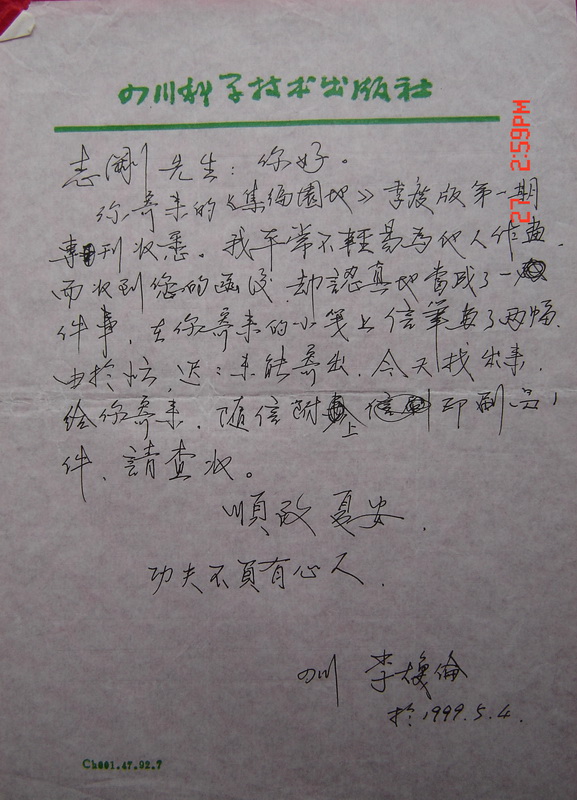 四川科学技术出版社
志刚先生：你好。
你寄来的《集编園地》季度版第一期
專刊收悉。我平常不輕易為他人作畫，
而收到您的函後，却認真地當成了一
件事，在你寄来的小箋上信筆畫了两幅，
由於忙，迟迟未能寄出，今天找出来，
给你寄来，随信附上印刷品1
件，請查收。
順致夏安。
功夫不負有心人。
四川 李煥倫
於1999.5.4.
Ch001.47.92.7
27 2:59PM